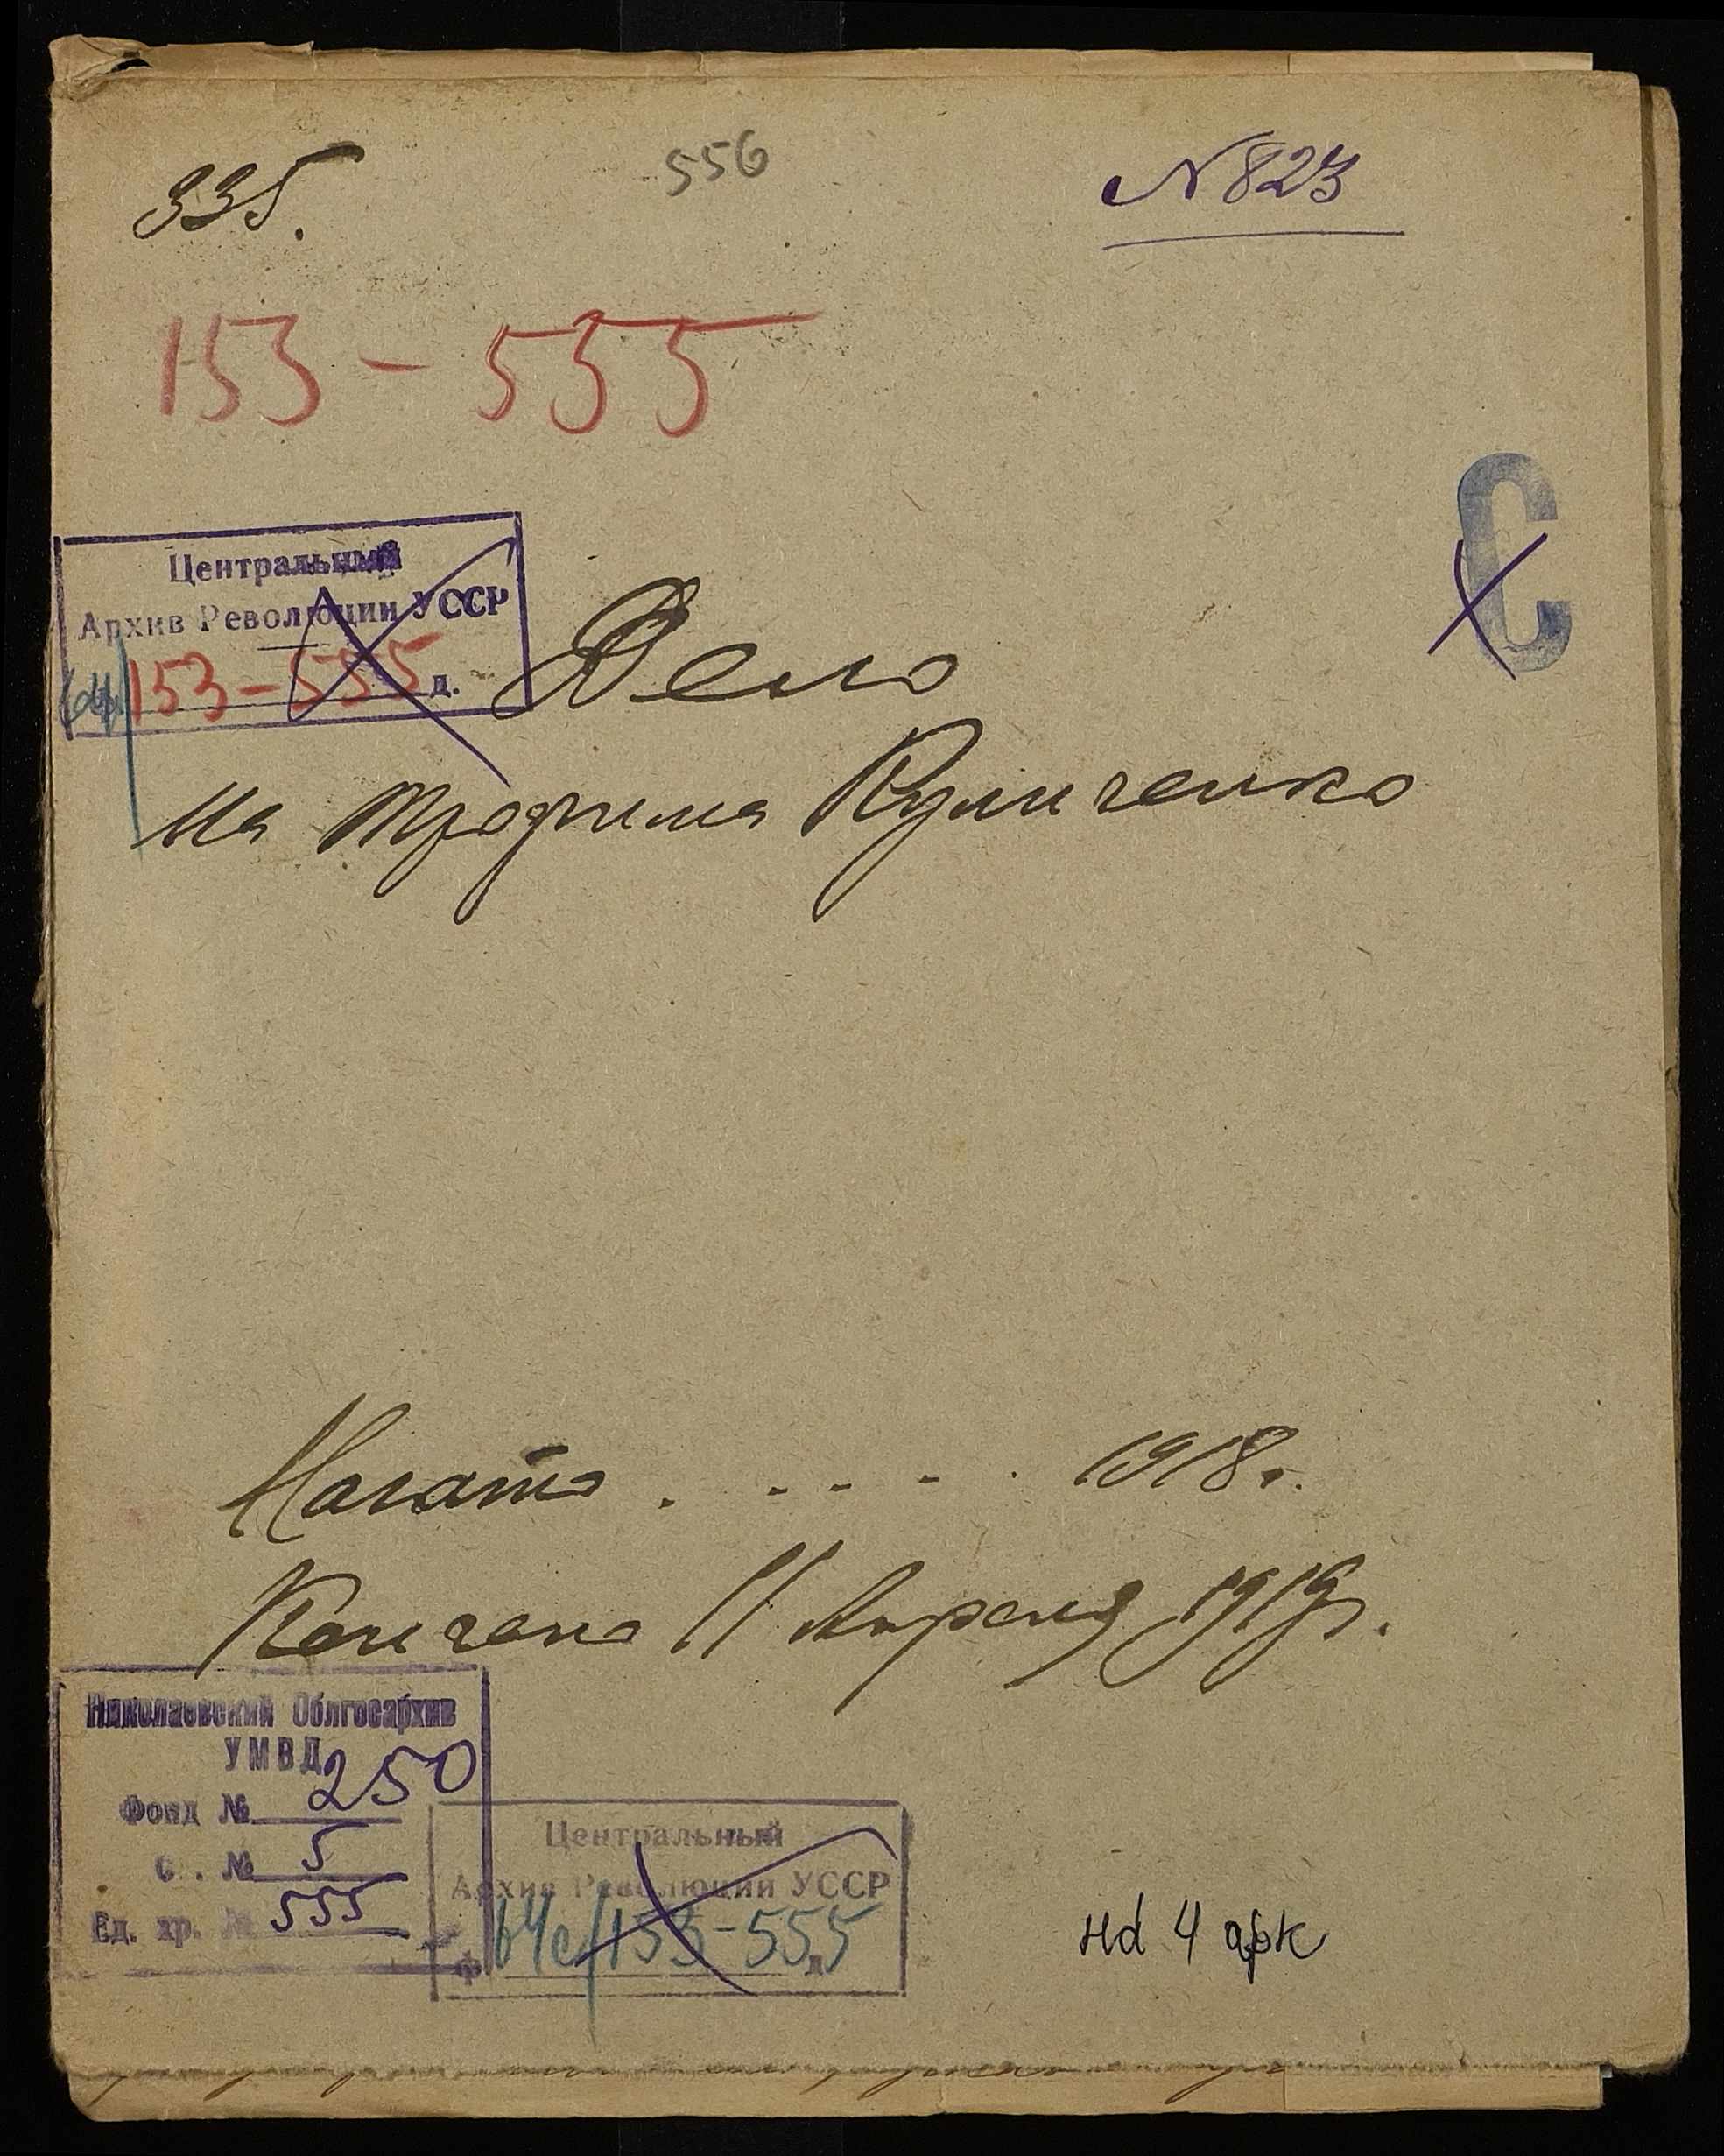 335.
556
№ 823
153 – 555
С
Центральный
Архив Революции УССР
153–555 д.
Дело
На Трофима Куличенко
Начато . . . . . 1918 г.
Кончено 11 Апреля 1919 г.
Николаевский Облгосархив
УМВД
Фонд № 250
№ 5
Ед. хр. № 555
Центральный
Архив Революции УССР
ф. 64с/153–555 д.
На 4 арк